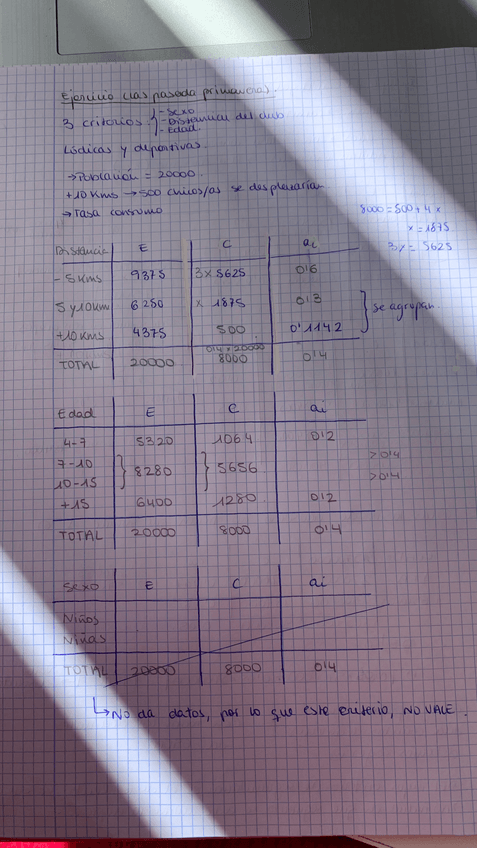 Ejercicio (las pasada primavera).
3 criterios
- Sexo
- Distancia del club
- Edad.
Lúdicas y deportivas.
→Población = 20000
+10 Kms → 500 chicos/as se desplazarían
→ Tasa consumo
8000 = 500 + 4x
x = 1875
3x = 5625
Distancia E C ai
- 5 kms 9375 3x 5625 0'6
5 y 10 km 6250 x 1875 0'3
+10 kms 4375 500 0'1142
} se agrupan.
0'4 · 20000
TOTAL 20000 8000 0'4
Edad E C ai
4-7 5320 1064 0'2
7-10 > 0'4
} 8280 } 5656
10-15 > 0'4
+15 6400 1280 0'2
TOTAL 20000 8000 0'4
Sexo E C ai
Niños
Niñas
TOTAL 20000 8000 0'4
↳ No da datos, por lo que este criterio, NO VALE.